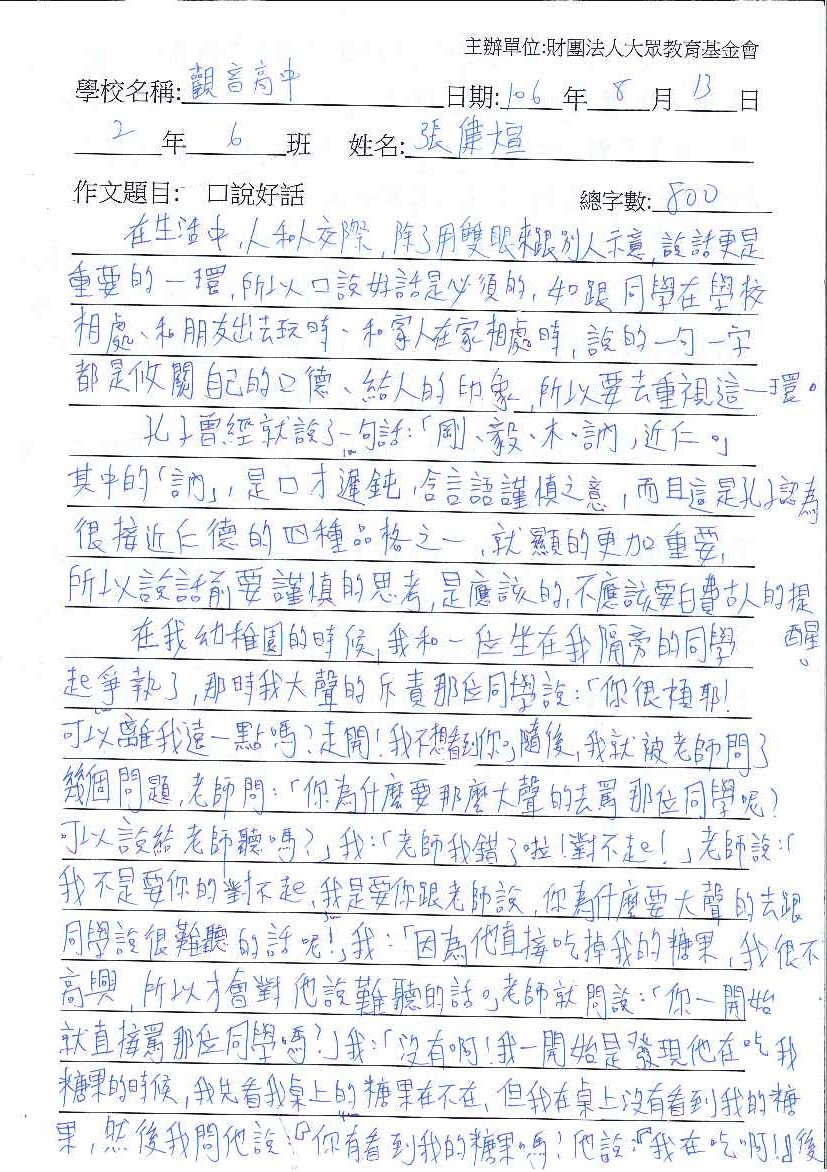 主辦單位:財團法人大眾教育基金會
學校名稱:觀音高中 日期:106 年 8 月 13 日
2 年 6 班 姓名:張健煊
作文題目: 口說好話 總字數:800
在生活中,人和人交際,除了用雙眼來跟別人示意,說話更是
重要的一環,所以口說好話是必須的,如跟同學在學校
相處、和朋友出去玩時、和家人在家相處時,說的一句一字
都是攸關自己的口德、給人的印象,所以要去重視這一環。
孔子曾經就說了一句話:「剛、毅、木、訥,近仁。」
其中的「訥」,是口才遲鈍,含言語謹慎之意,而且這是孔子認為
很接近仁德的四種品格之一,就顯的更加重要,
所以說話前要謹慎的思考,是應該的,不應該要白費古人的提
醒。
在我幼稚園的時候,我和一位坐在我隔旁的同學
起爭執了,那時我大聲的斥責那位同學說:「你很煩耶!
可以離我遠一點嗎?走開!我不想看到你。」隨後,我就被老師問了
幾個問題,老師問:「你為什麼要那麼大聲的去罵那位同學呢?
可以說給老師聽嗎?」我:「老師我錯了啦!對不起!」老師說:「
我不是要你的對不起,我是要你跟老師說,你為什麼要大聲的去跟
同學說很難聽的話呢!」我:「因為他直接吃掉我的糖果,我很不
高興,所以才會對他說難聽的話。」老師就問說:「你一開始
就直接罵那位同學嗎?」我:「沒有啊!我一開始是發現他在吃我
糖果的時候,我先看我桌上的糖果在不在,但我在桌上沒有看到我的糖
果,然後我問他說:『你有看到我的糖果嗎?他說:『我在吃啊!』後